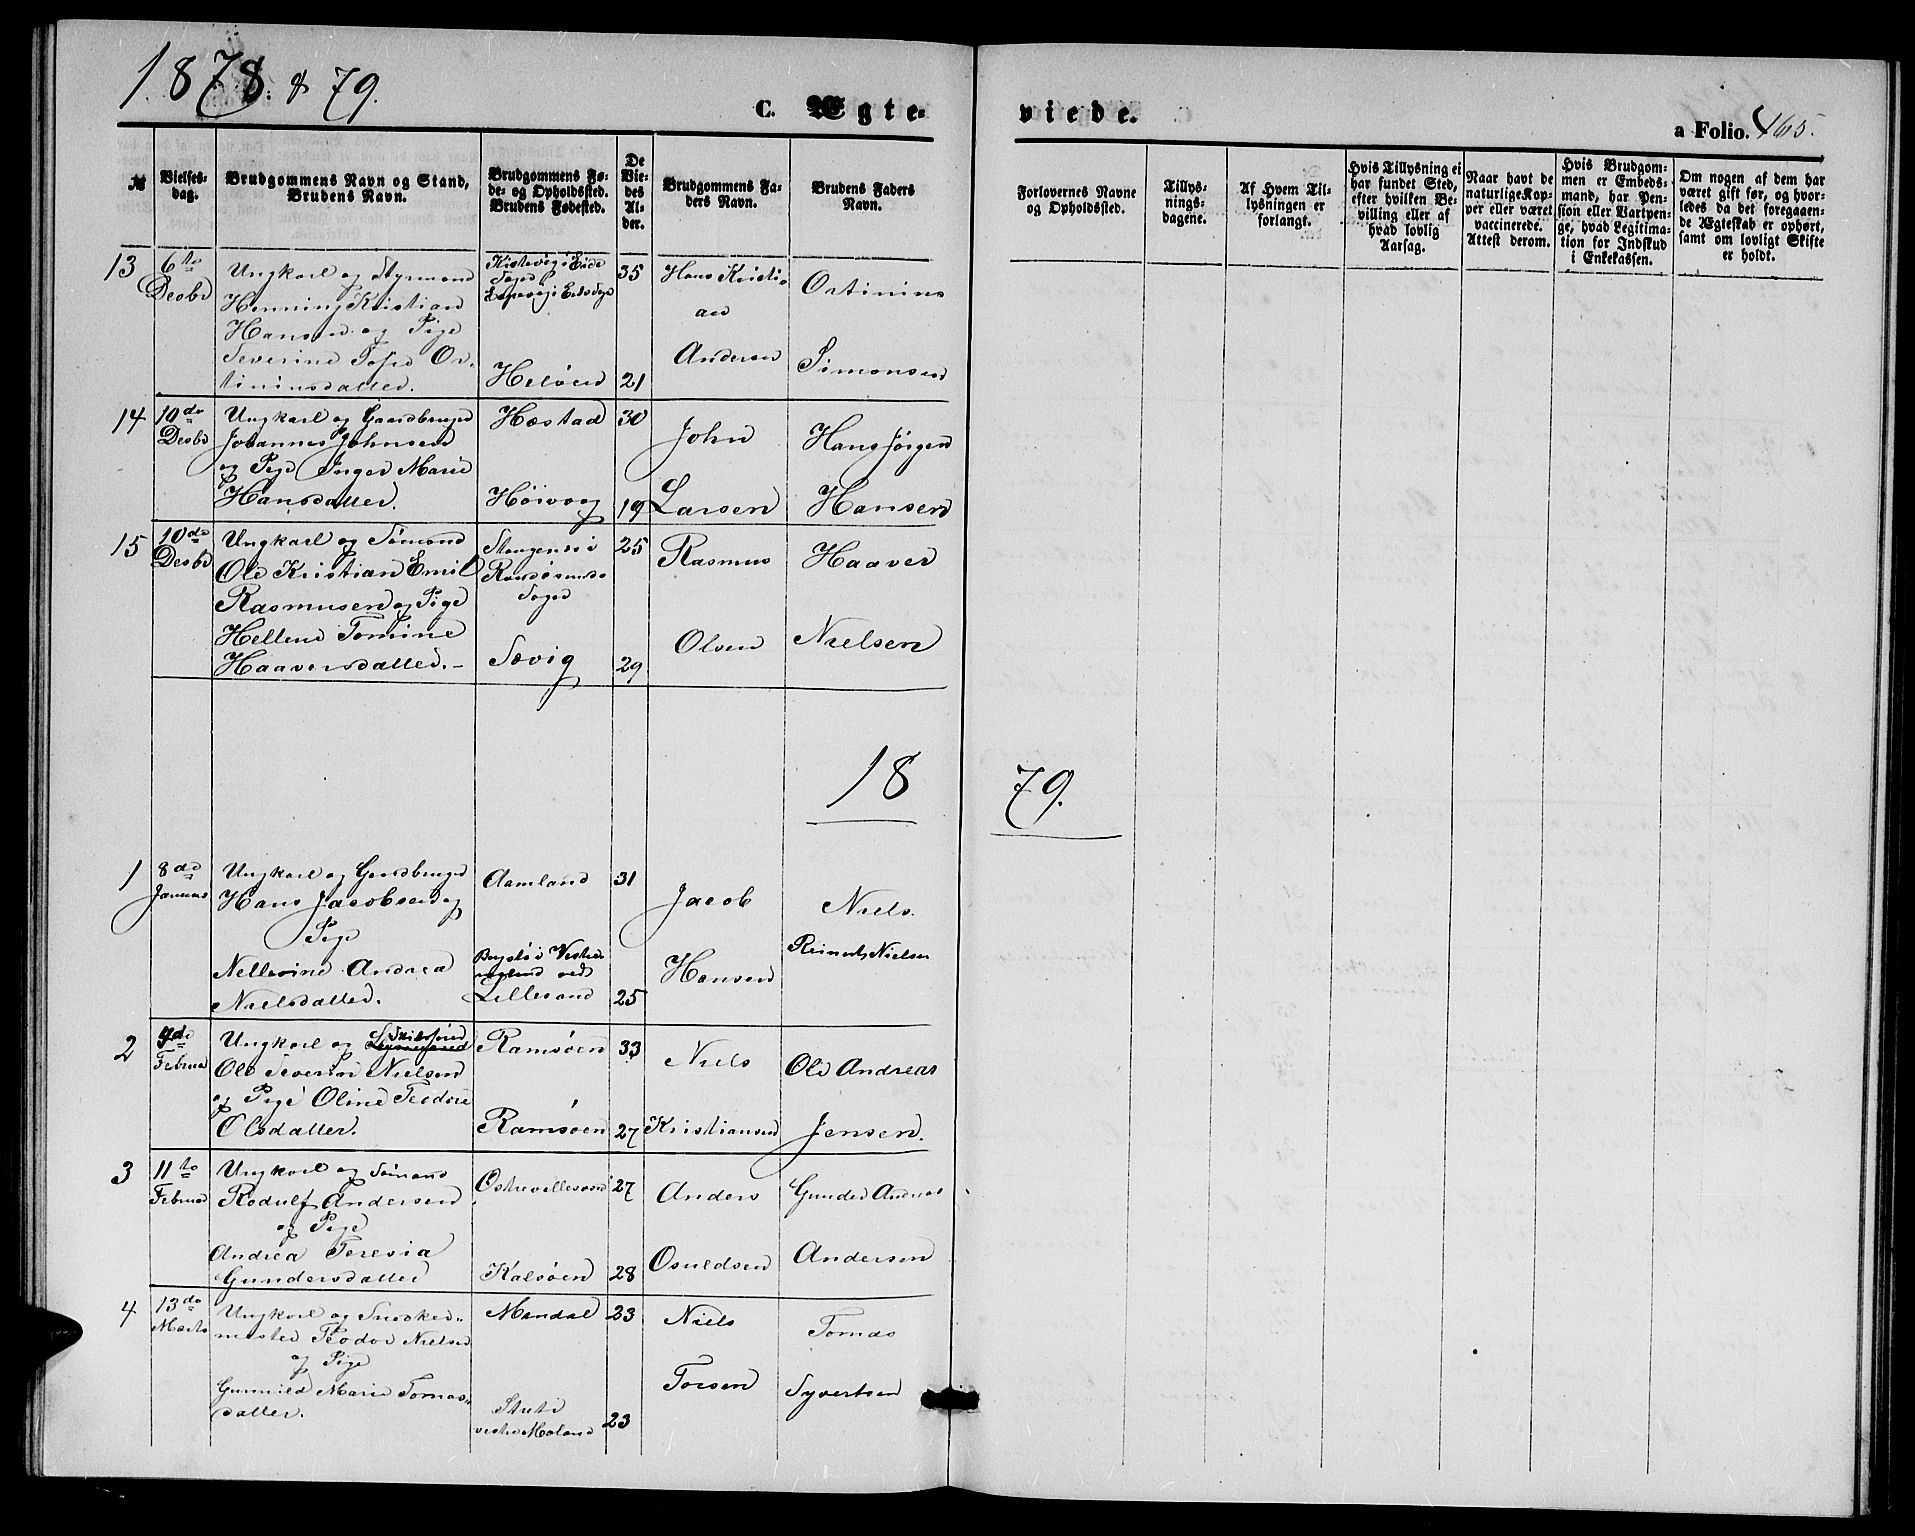 1878 & 79.
C. Ægte-
viede.
a Folio. 165.
№
Vielses-
dag.
Brudgommens Navn og Stand,
Brudens Navn.
Brudgommens Fø-
de- og Opholdssted.
Brudens Fødested.
De
Vie-
des
Al-
der.
Brudgommens Fa-
ders Navn.
Brudens Faders
Navn.
Forlovernes Navne
og Opholdssted.
Tillys-
nings-
dagene.
Af Hvem Til-
lysningen er
forlangt.
Hvis Tillysning ei
har fundet Sted,
efter hvilken Be-
villing eller af
hvad lovlig
Aarsag.
Naar havt de
naturlige Kop-
per eller været
vaccinerede.
Attest derom.
Hvis Brudgom-
men er Embeds-
mand, har Pen-
sion eller Vartpen-
ge, hvad Legitima-
tion for Indskud
i Enkekassen.
Om nogen af dem har
været gift før, og hvor-
ledes da det foregaaen-
de Ægteskab er ophørt,
samt om lovligt Skifte
er holdt.
13
6te
Desbr
Ungkarl og Styrmand
Henning Kristian
Hansen og Pige
Severine Tofre Or-
tininsdatter.
Eide
Sogn
Heløen
35
21
Hans Kristi-
an
Andersen
Ortinius
Simonsen
14
10de
Desbr
Ungkarl og Gaardbruger
Johannes Johnsen
og Pige Inger Marie
Hansdatter.
Hæstad
Høivog
30
19
John
Larsen
Hans Jørgen
Hansen
15
10de
Desbr
Ungkarl og Sømand
Ole Kristian Emil
Rasmusen og Pige
Hellene Tomine
Haaversdatter.-
Stangenes i
Randøsunds
Sogn
Sævig
25
29
Rasmus
Olsen
Haaver
Nielsen
1879.
1
8de
Januar
Ungkarl og Gaardbruger
Hans Jacobsen og
Pige
Nellevine Andrea
Nielsdatter.
Aamland
i Vestre
ved
Lillesand
31
25
Jacob
Hansen
Niels
Reinert Nielsen
2
9de
Februar
Ungkarl og Skibsfører
Ole Severin Nielsen
og Pige Oline Teodore
Olsdatter.
Ramsøen
Ramsøen
33
27
Niels
Kristiansen
Ole Andreas
Jensen.
3
11te
Februar
Ungkarl og Sømand
Rodulf Andersen
og Pige
Andrea Teresia
Gundersdatter
Ostrevillesand
Kalsøen
27
28
Anders
Osuldsen
Gunder Andreas
Andersen
4
13de
Marts
Ungkarl og Snedker-
mester Teodor Nielsen
og Pige
Gunnild Marie Tomas-
datter.
Mandal
vestre Moland
23
23
Niels
Torsen
Tomas
Syvertsen